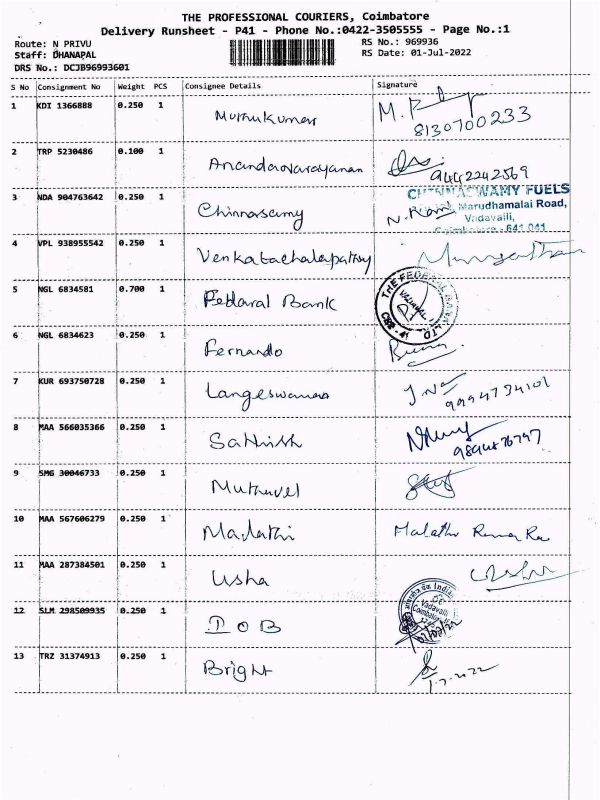 THE PROFESSIONAL COURIERS, Coimbatore
Delivery Runsheet - P41 - Phone No.:0422-3505555 - Page No.:1
Route: N PRIVU
Staff: DHANAPAL
DRS No.: DCJB96993601
RS No.: 969936
RS Date: 01-Jul-2022
S No Consignment No Weight PCS Consignee Details Signature
1 KDI 1366888 0.250 1 Muthukumar
8130700233
2 TRP 5230486 0.100 1 Anandanarayanan
9442242569
3 NDA 904763642 0.250 1 Chinnasamy N. Ram
CHENNASWAMY FUELS
Marudhamalai Road,
Vadavalli,
Coimbatore - 641 041
4 VPL 938955542 0.250 1 Venkatachalapathy
5 NGL 6834581 0.700 1 Fedaral Bank THE FEDERAL BANK LTD
6 NGL 6834623 0.250 1 Fernando
7 KUR 693750728 0.250 1 Langeswaran
9994734101
8 MAA 566035366 0.250 1 Sathish
9894876797
9 SMG 30046733 0.250 1 Muthuvel
10 MAA 567606279 0.250 1 Malathi Malathi
11 MAA 287384501 0.250 1 Usha
12 SLM 298509935 0.250 1 I O B
Vadavalli
Coimbatore
13 TRZ 31374913 0.250 1 Bright
1.7.2022